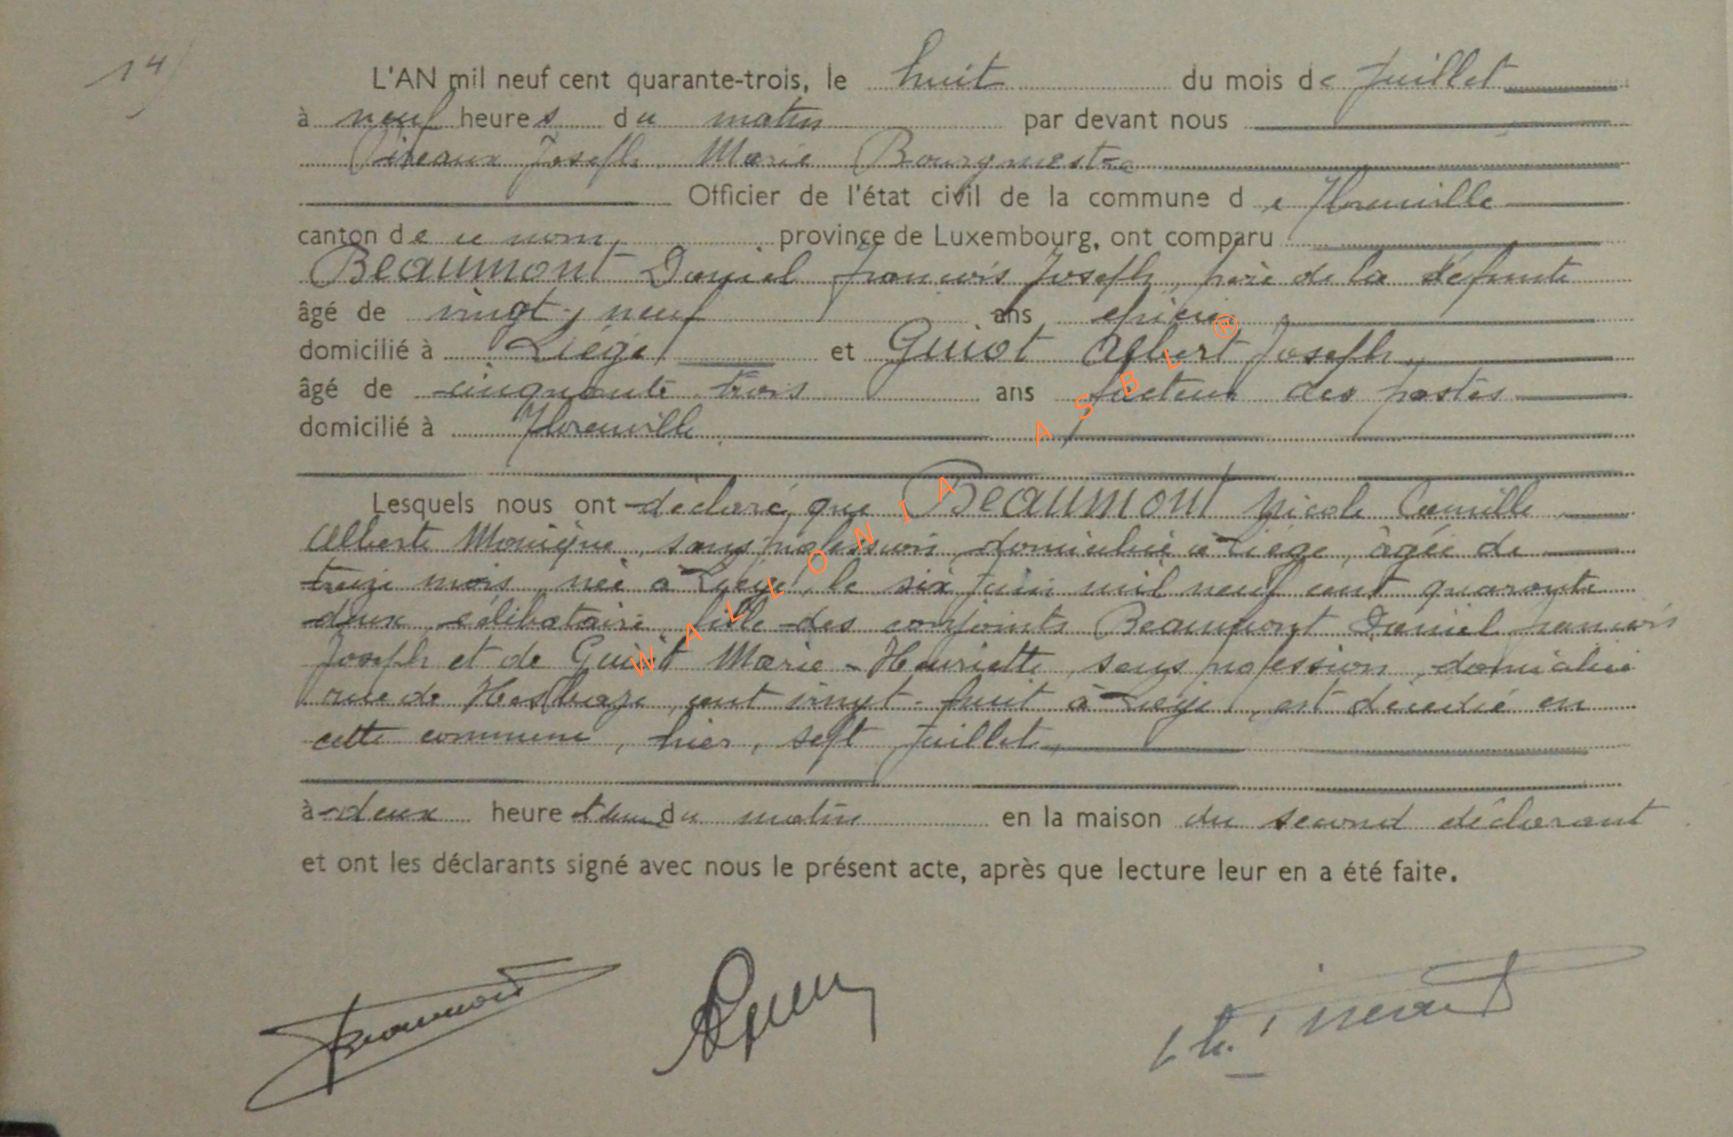 14/
L'AN mil neuf cent quarante-trois, le huit du mois de Juillet
à neuf heures du matin par devant nous
Joseph Marie Bourgmestre
Officier de l'état civil de la commune de Florenville
canton de ce nom, province de Luxembourg, ont comparu
BEAUMONT Daniel françois Joseph, père de la défunte
âgé de vingt neuf ans épicier
domicilié à Liège et Guiot Albert Joseph,
âgé de cinquante trois ans facteur des postes
domicilié à Florenville
Lesquels nous ont déclaré que BEAUMONT Nicole Camille
Alberte Monique, sans profession, domiciliée à Liège, âgée de
treize mois, née à Liège, le six Juin mil neuf cent quarante
deux, célibataire, fille des conjoints Beaumont Daniel françois
Joseph et de Guiot Marie-Henriette, sans profession, domiciliée
rue de Hesbaye, cent vingt-huit à Liège, est décédée en
cette commune, hier, sept Juillet,
à deux heure du matin en la maison du second déclarant
et ont les déclarants signé avec nous le présent acte, après que lecture leur en a été faite.
Beaumont
WALLONIA ASBL ®